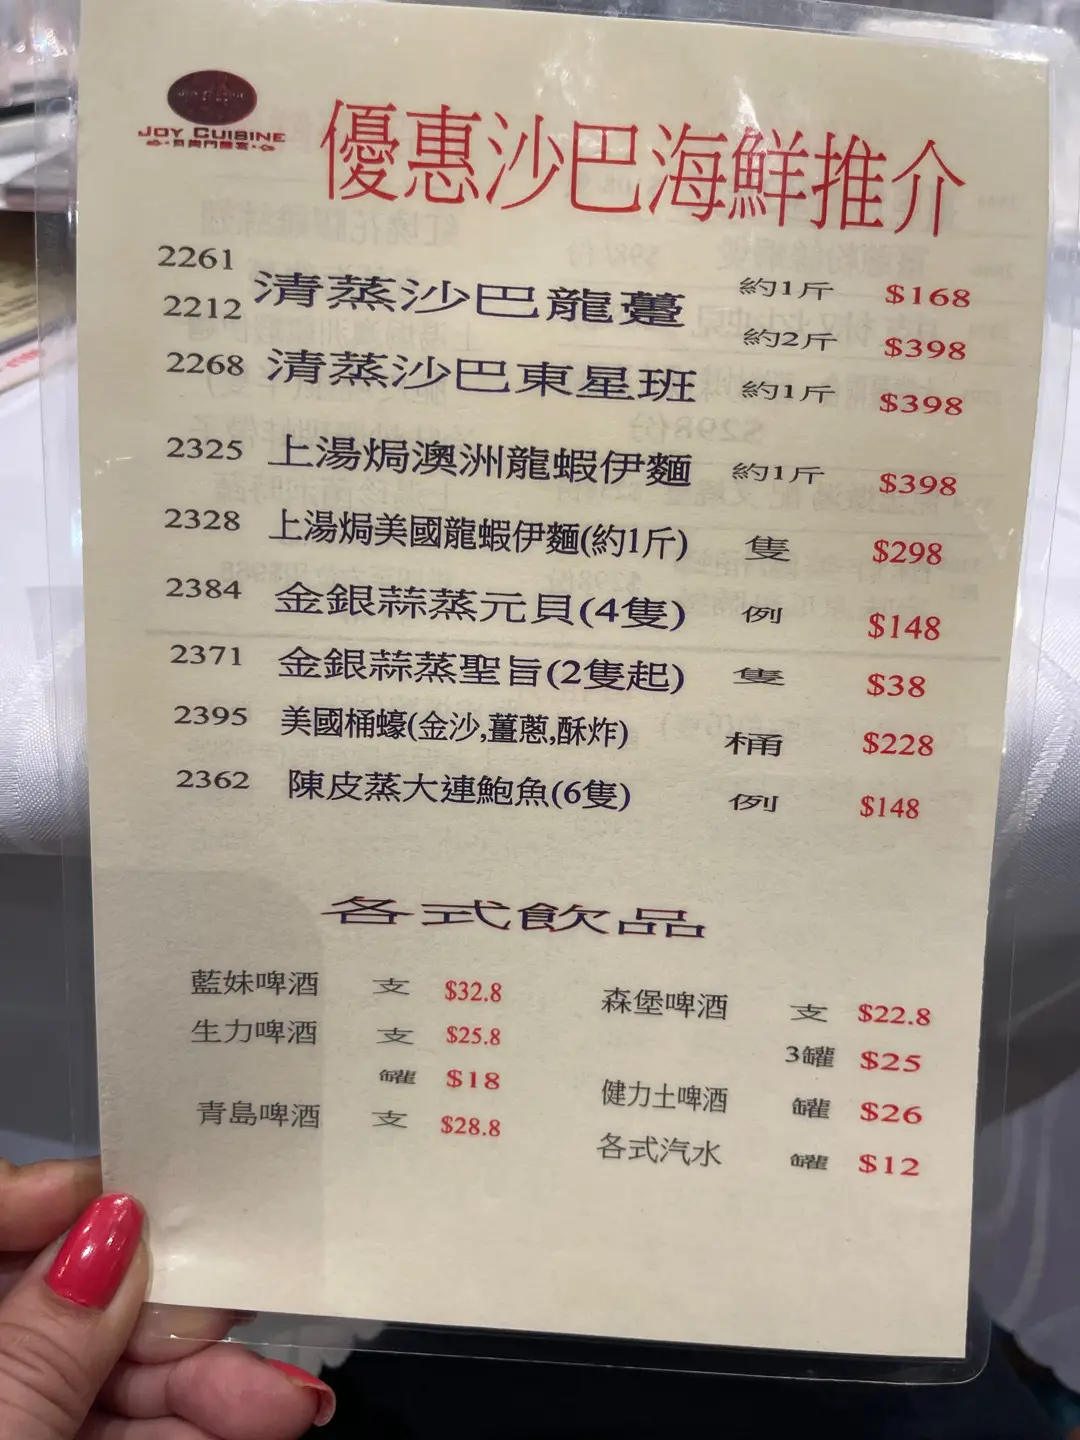 JOY CUISINE
優惠沙巴海鮮推介
2261 清蒸沙巴龍躉 約1斤 $168
2212 約2斤 $398
2268 清蒸沙巴東星班 約1斤 $398
2325 上湯焗澳洲龍蝦伊麵 約1斤 $398
2328 上湯焗美國龍蝦伊麵(約1斤) 隻 $298
2384 金銀蒜蒸元貝(4隻) 例 $148
2371 金銀蒜蒸聖旨(2隻起) 隻 $38
2395 美國桶蠔(金沙,薑蔥,酥炸) 桶 $228
2362 陳皮蒸大連鮑魚(6隻) 例 $148
各式飲品
藍妹啤酒 支 $32.8
生力啤酒 支 $25.8
罐 $18
青島啤酒 支 $28.8
森堡啤酒 支 $22.8
3罐 $25
健力士啤酒 罐 $26
各式汽水 罐 $12